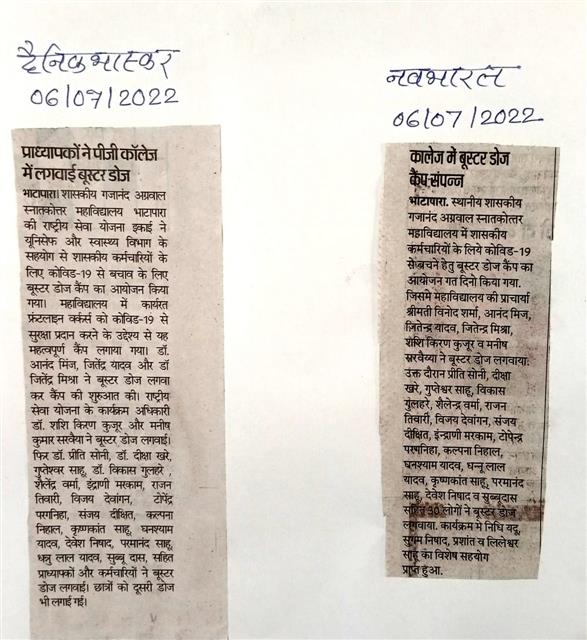 दैनिक भास्कर
06/07/2022
प्राध्यापकों ने पीजी कॉलेज
में लगवाई बूस्टर डोज
भाटापारा। शासकीय गजानंद अग्रवाल
स्नातकोत्तर महाविद्यालय भाटापारा
की राष्ट्रीय सेवा योजना इकाई ने
यूनिसेफ और स्वास्थ्य विभाग के
सहयोग से शासकीय कर्मचारियों के
लिए कोविड-19 से बचाव के लिए
बूस्टर डोज कैंप का आयोजन किया
गया। महाविद्यालय में कार्यरत
फ्रंटलाइन वर्कर्स को कोविड-19 से
सुरक्षा प्रदान करने के उद्देश्य से यह
महत्वपूर्ण कैंप लगाया गया। डॉ.
आनंद मिंज, जितेंद्र यादव और डॉ
जितेंद्र मिश्रा ने बूस्टर डोज लगवा
कर कैंप की शुरुआत की। राष्ट्रीय
सेवा योजना के कार्यक्रम अधिकारी
डॉ. शशि किरण कुजूर और मनीष
कुमार सरवैया ने बूस्टर डोज लगवाई।
फिर डॉ. प्रीति सोनी, डॉ. दीक्षा खरे,
गुप्तेश्वर साहू, डॉ. विकास गुलहरे ,
शैलेंद्र वर्मा, इंद्राणी मरकाम, राजन
तिवारी, विजय देवांगन, टोपेंद्र
परगनिहा, संजय दीक्षित, कल्पना
निहाल, कृष्णकांत साहू, घनश्याम
यादव, देवेश निषाद, परमानंद साहू,
धन्नु लाल यादव, सुब्बू दास, सहित
प्राध्यापकों और कर्मचारियों ने बूस्टर
डोज लगवाई। छात्रों को दूसरी डोज
भी लगाई गई।
नवभारत
06/07/2022
कालेज में बूस्टर डोज
कैंप संपन्न
भाटापारा. स्थानीय शासकीय
गजानंद अग्रवाल स्नातकोत्तर
महाविद्यालय में शासकीय
कर्मचारियों के लिये कोविड-19
से बचने हेतु बूस्टर डोज कैंप का
आयोजन गत दिनो किया गया.
जिसमे महाविद्यालय की प्राचार्या
श्रीमती विनोद शर्मा, आनंद मिज,
जितेन्द्र यादव, जितेन्द्र मिश्रा,
शशि किरण कुजूर व मनीष
सरवैय्या ने बूस्टर डोज लगवाया.
उक्त दौरान प्रीति सोनी, दीक्षा
खरे, गुप्तेश्वर साहू, विकास
गुलहरे, शैलेन्द्र वर्मा, राजन
तिवारी, विजय देवांगन, संजय
दीक्षित, इंन्द्राणी मरकाम, टोपेन्द्र
परगनिहा, कल्पना निहाल,
घनश्याम यादव, धन्नू लाल
यादव, कृष्णकांत साहू, परमानंद
साहू, देवेश निषाद व सुब्बूदास
सहित 30 लोगों ने बूस्टर डोज
लगवाया. कार्यक्रम मे निधि यदू,
सुगम निषाद, प्रशांत व लिलेश्वर
साहू का विशेष सहयोग
प्राप्त हुआ.